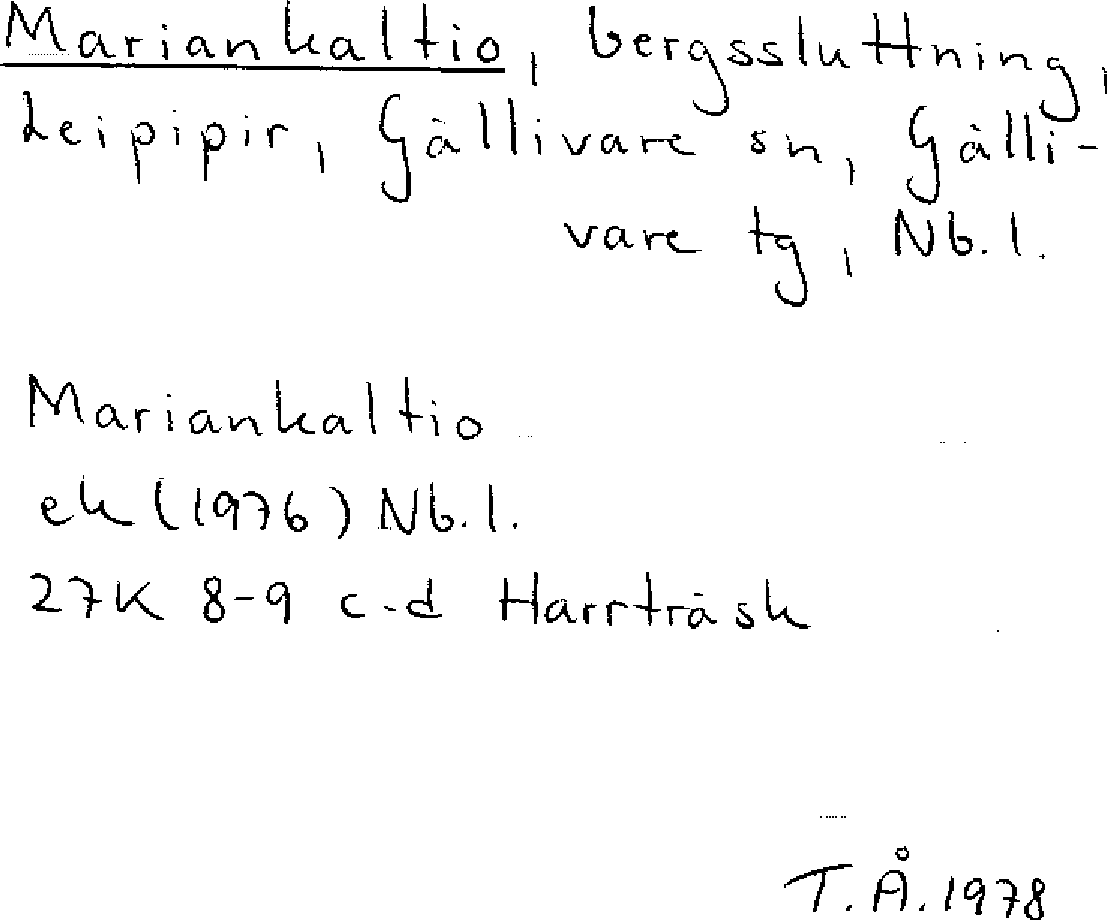 Mariankaltio, bergssluttning,
Leipipir, Gällivare sn, Gälli-
vare tg, Nb.l.
Mariankaltio
ek (1976) Nb.l.
27K 8-9 c-d Harrträsk
T.Å. 1978